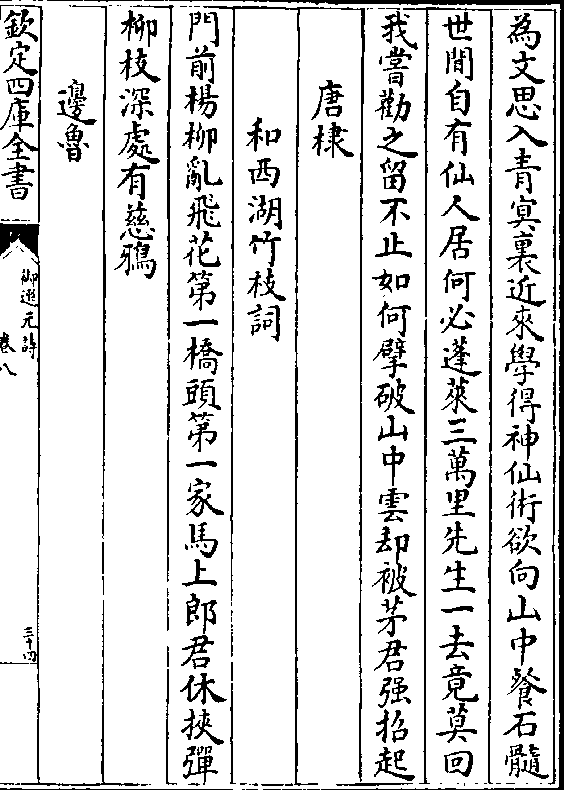 為文思入青冥裏近來學得神仙術欲向山中餐石髓
世間自有仙人居何必蓬萊三萬里先生一去竟莫回
我嘗勸之留不止如何擘破山中雲却被茅君强招起
唐棣
和西湖竹枝詞
門前楊柳亂飛花第一橋頭第一家馬上郎君休挾彈
柳枝深處有慈鴉
邊魯
欽定四庫全書
御選元詩
卷八
三十四